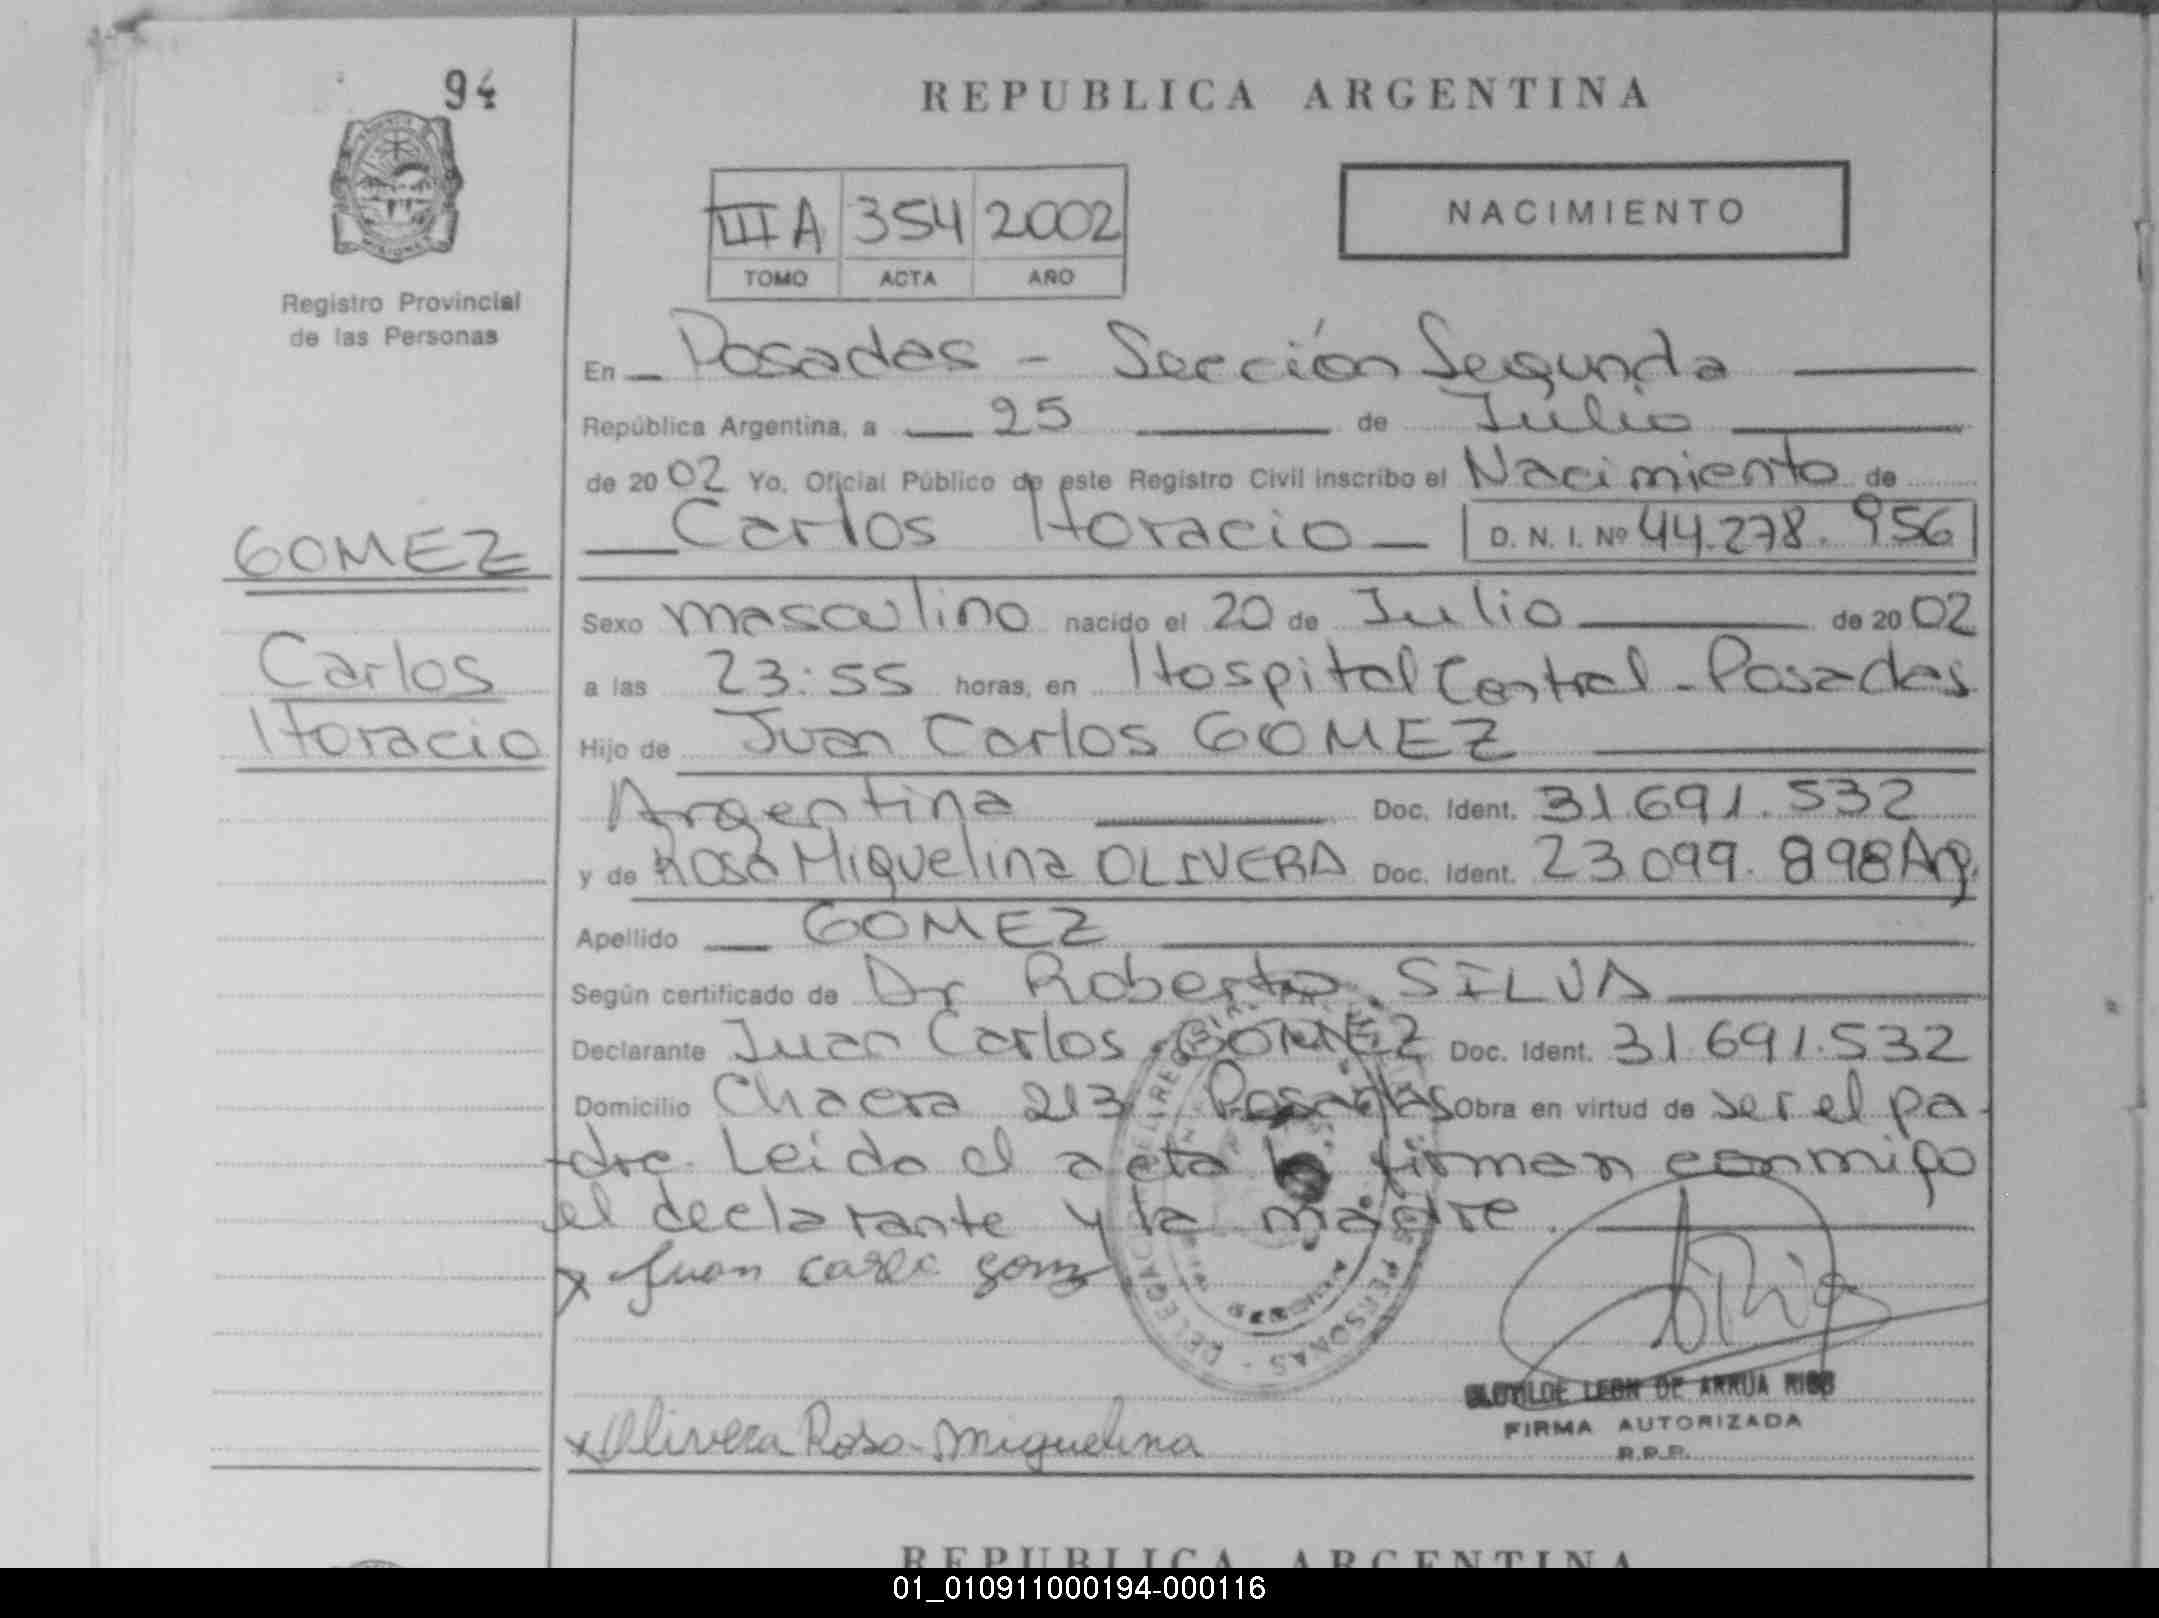 94
REPUBLICA ARGENTINA
III A 354 2002
TOMO ACTA AÑO
NACIMIENTO
Registro Provincial
de las Personas
En Posadas - Sección Segunda
República Argentina, a 25 de Julio
de 2002 Yo, Oficial Público de este Registro Civil inscribo el Nacimiento de
GOMEZ
Carlos Horacio D. N. I. Nº 44.278.956
Sexo masculino nacido el 20 de Julio de 2002
Carlos
a las 23:55 horas, en Hospital Central - Posadas
Horacio
Hijo de Juan Carlos GOMEZ
Argentina Doc. Ident. 31.691.532
y de Rosa Miquelina OLIVERA Doc. Ident. 23.099.898 Arg.
Apellido GOMEZ
Según certificado de Dr Roberto SILVA
Declarante Juan Carlos GOMEZ Doc. Ident. 31.691.532
Domicilio Chacra 213 Posadas Obra en virtud de ser el pa-
dre. Leida el acta la firman conmigo
el declarante y la madre.
x Juan
x Olivera Rosa Miguelina
CLOTILDE LEON DE ARRUA RIOS
FIRMA AUTORIZADA
R.P.P.
REPUBLICA ARGENTINA
01_010911000194-000116